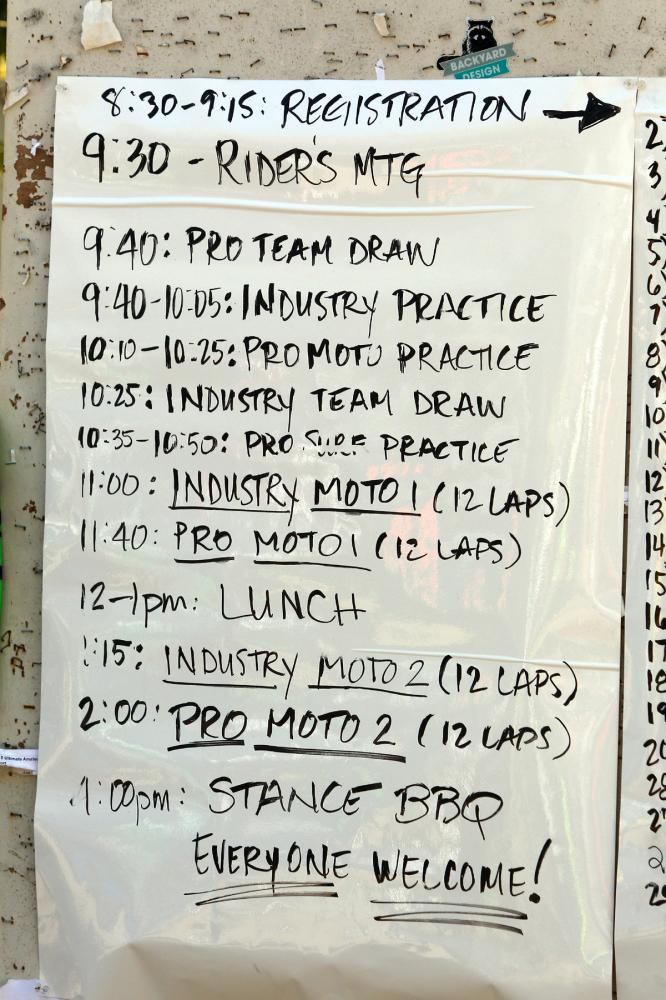 BACKYARD
DESIGN
8:30-9:15: REGISTRATION →
9:30 - RIDER'S MTG
9:40: PRO TEAM DRAW
9:40-10:05: INDUSTRY PRACTICE
10:10-10:25: PRO MOTO PRACTICE
10:25: INDUSTRY TEAM DRAW
10:35-10:50: PRO SURF PRACTICE
11:00: INDUSTRY MOTO 1 (12 LAPS)
11:40: PRO MOTO 1 (12 LAPS)
12-1pm: LUNCH
1:15: INDUSTRY MOTO 2 (12 LAPS)
2:00: PRO MOTO 2 (12 LAPS)
:00pm: STANCE BBQ
EVERYONE WELCOME!
2)
3
4
5)
6)
7
8
9
10
11
12
13
14
15
16
17
18
19